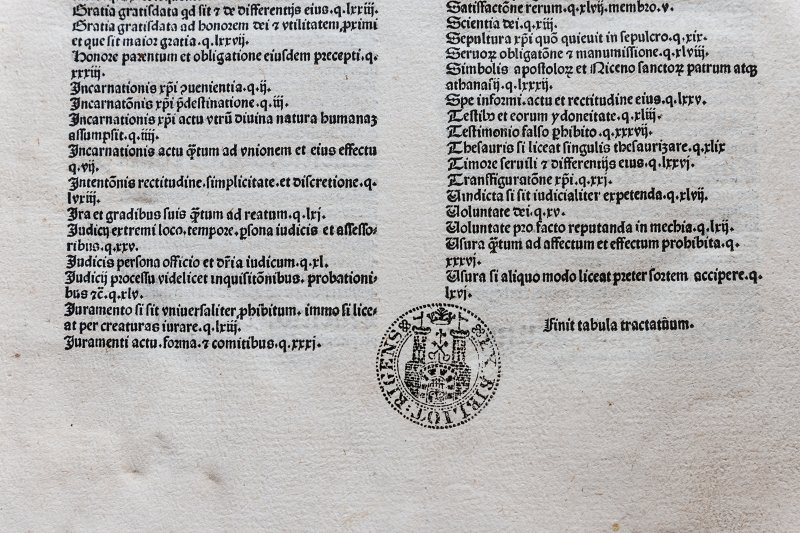 Gratia gratisdata qd sit ⁊ de differentijs eius.q.lxxiij.
Gratia gratisdata ad honorem dei ⁊ vtilitatem ꝓximi
et que sit maior gratia.q.lxxvij.
Honore parentum et obligatione eiusdem precepti.q.
xxxiij.
Incarnationis xp̄i ꝯuenientia.q.ij.
Incarnatōnis xp̄i p̄destinatione.q.iij.
Incarnationis xp̄i actu vtrū diuina natura humanaꝫ
assumpsit.q.iiij.
Incarnationis actu q̄tum ad vnionem et eius effectu
q.vij.
Intentōnis rectitudine.simplicitate.et discretione.q.
lviij.
Ira et gradibus suis q̄tum ad reatum.q.lxj.
Judicij extremi loco.tempoꝛe.ꝑsona iudicis et assesso-
ribus.q.xxv.
Judicis persona officio et dr̄ia iudicum.q.xl.
Judicij processu videlicet inquisitōnibus.probationi-
bus ⁊c̄.q.xlv.
Juramento si sit vniuersaliter ꝓhibitum.immo si lice-
at per creaturas iurare.q.lxiij.
Juramenti actu.forma.⁊ comitibus.q.xxxj.
Satisfactōne rerum.q.xlvij.membro.v.
Scientia dei.q.xiij.
Sepultura xp̄i quō quieuit in sepulcro.q.xix.
Seruoꝝ obligatōne ⁊ manumissione.q.xlviij.
Simbolis apostoloꝝ et Niceno sanctoꝝ patrum atqꝫ
athanasij.q.lxxxij.
Spe informi.actu et rectitudine eius.q.lxxv.
Testibꝰ et eorum ydoneitate.q.xliij.
Testimonio falso ꝓhibito.q.xxxvij.
Thesauris si liceat singulis thesaurizare.q.xlix
Timoꝛe seruili ⁊ differentijs eius.q.lxxvj.
Transfiguratōne xp̄i.q.xxj.
Vindicta si sit iudicialiter expetenda.q.xlvij.
Voluntate dei.q.xv.
Voluntate pro facto reputanda in mechia.q.lxij.
Vsura q̄tum ad affectum et effectum prohibita.q.
xxxvj.
Vsura si aliquo modo liceat preter sortem accipere.q.
lxvj.
Finit tabula tractatuum.
EX BIBLIOT: RIGENS